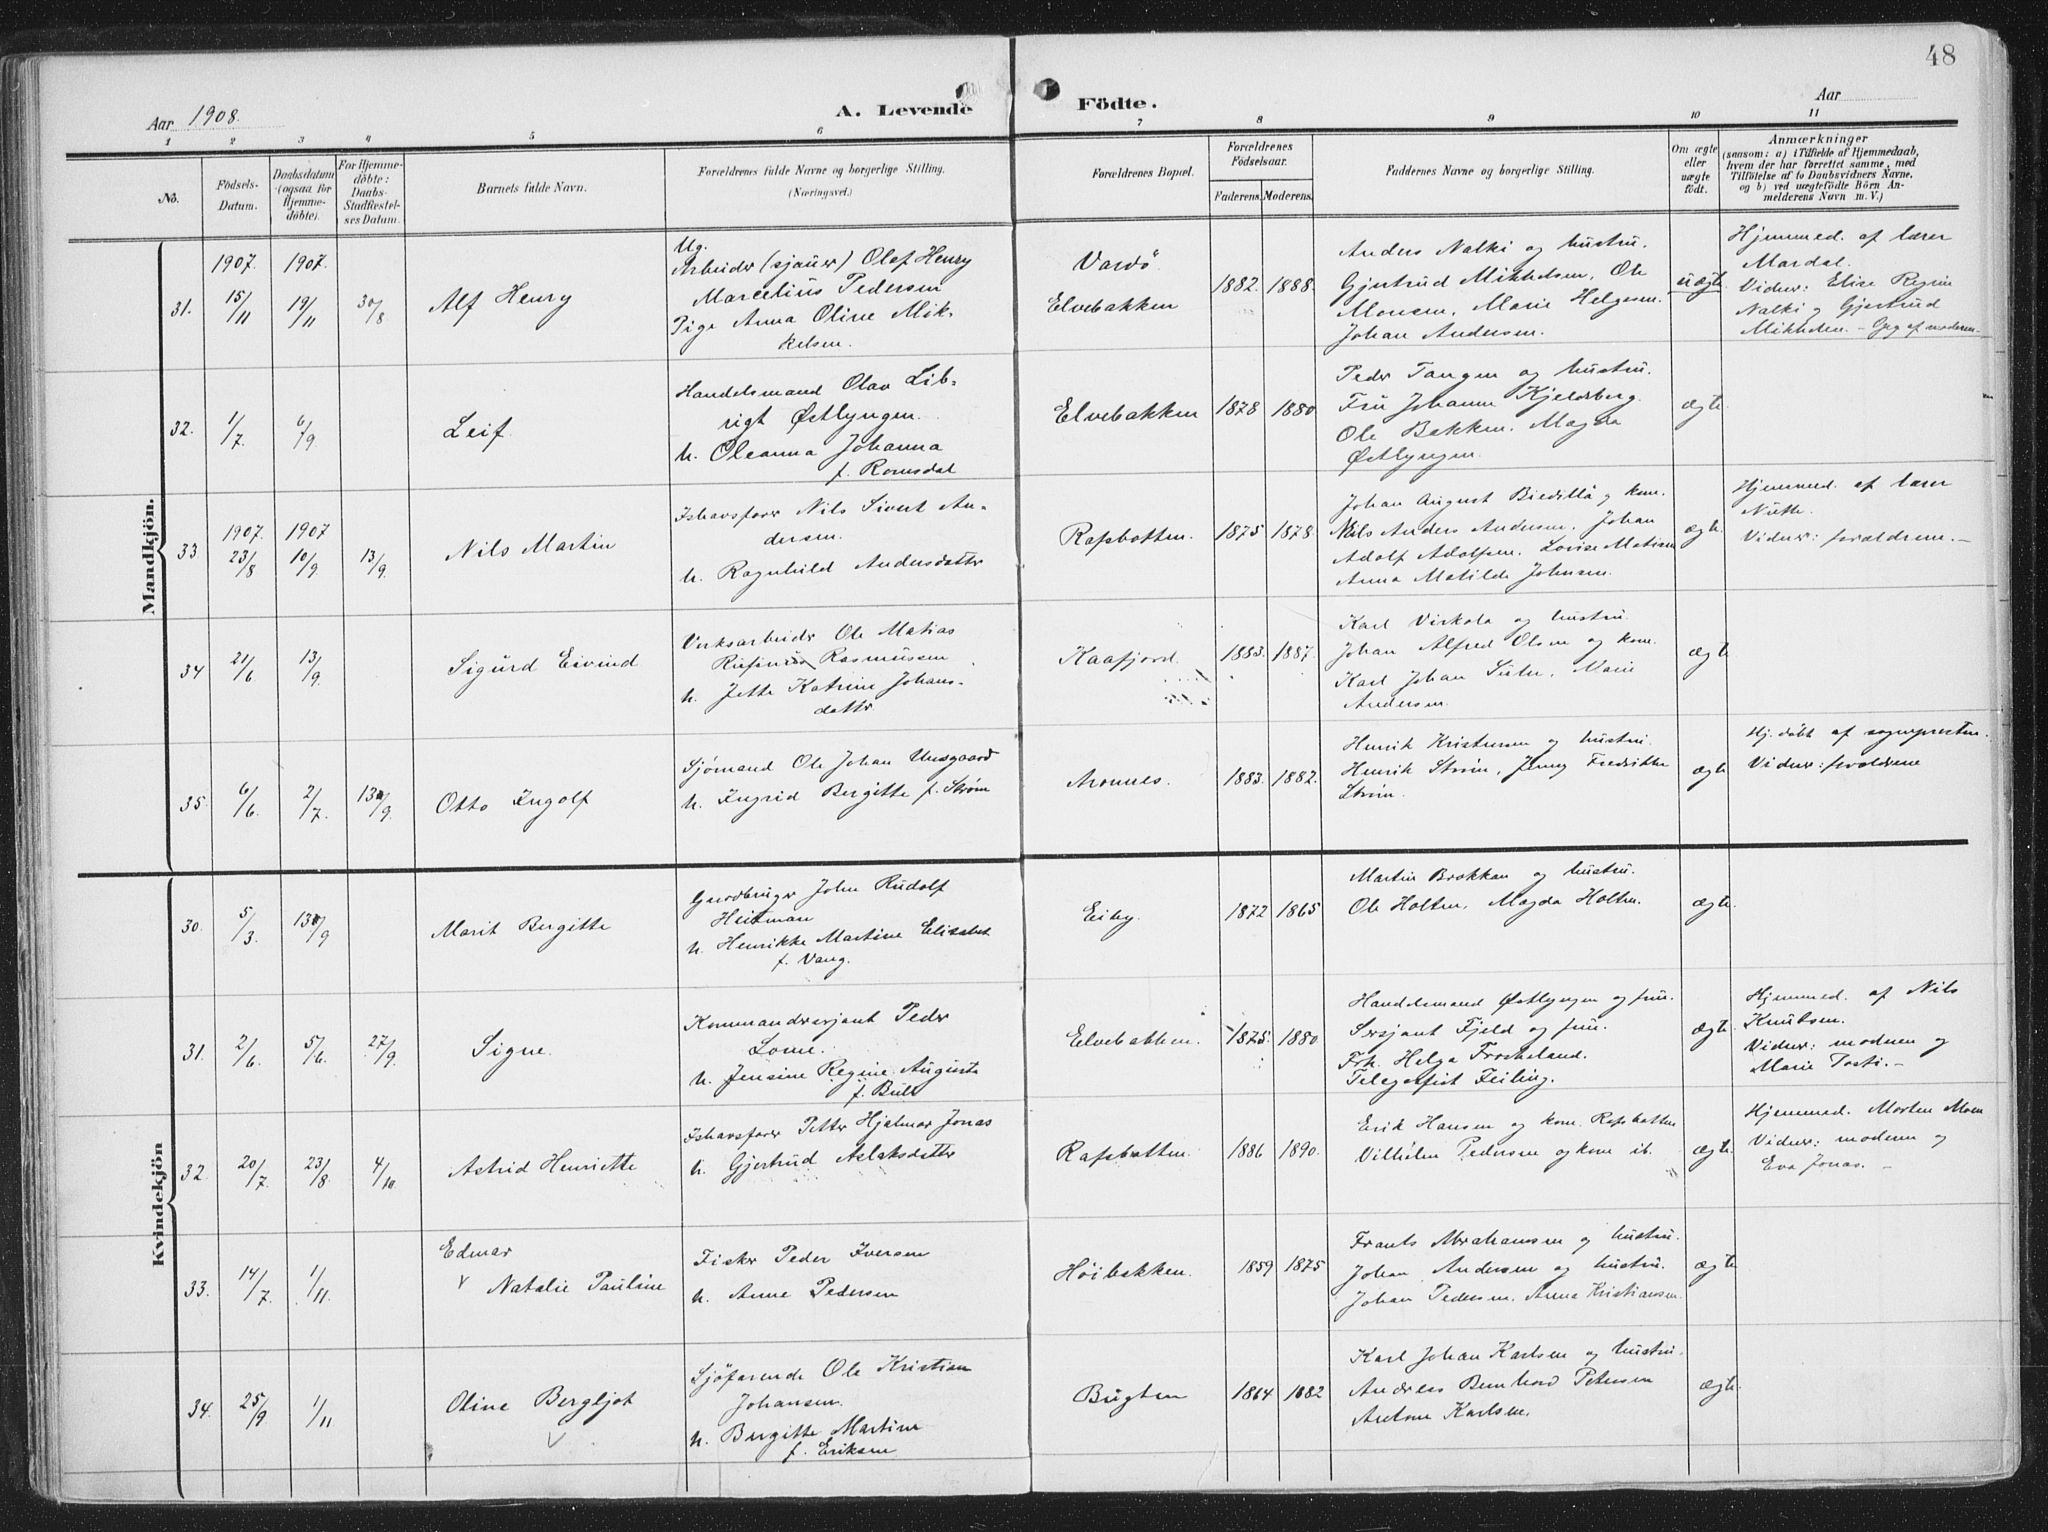 48
Aar 1908.
A. Levende Födte.
Aar
1 2 3 4 5 6 7 8 9 10 11
No.
Födsels-Datum.
Daabsdatum (ogsaa for Hjemme-döbte).
For Hjemme-döbte: Daabs-Stadfæstel-ses Datum.
Barnets fulde Navn.
Forældrenes fulde Navne og borgerlige Stilling.
(Næringsvei.)
Forældrenes Bopæl.
Forældrenes Födselsaar.
Faderens. Moderens.
Faddernes Navne og borgerlige Stilling.
Om ægte eller uægte födt.
Anmærkninger
(saasom: a) i Tilfælde af Hjemmedaab,
hvem der har forrettet samme, med
Tilföielse af to Daabsvidners Navne,
og b) ved uægtefödte Börn An-
melderens Navn m. V.)
Mandkjön.
31. 1907. 15/11 1907. 19/11 30/8 Alf Henry
Ug.
Arbeider (sjauer) Olaf Henry
Marcelius Pedersen
Pige Anna Oline Mik-
kelsen.
Vardö
Elvebakken
1882. 1888.
Anders Nalki og hustru.
Gjertrud Mikkelsen, Ole
Monsen, Marie Helgesen.
Johan Andersen.
uægte
Hjemmed. af lærer
Mardal.
Vidner: Elise Regine
Nalki og Gjertrud
Mikkelsen. – Opg. af moderen
32. 1/7. 6/9. Leif.
Handelsmand Olav Lib-
rigt Østlyngen.
h. Oleanna Johanna
f. Romsdal
Elvebakken 1878 1880
Peder Tangen og hustru.
Fru Johanne Kjeldsberg.
Ole Bakken. Magda
Østlyngen.
ægte
33 1907. 23/8 1907 10/9. 13/9. Nils Martin
Ishavsfarer Nils Sivert An-
dersen.
h. Ragnhild Andersdatter
Rafsbotten. 1875 1878.
Johan August og kone.
Nils Anders Andersen. Johan
Adolf Adolfsen. Lovise Matisen
Anna Matilde Johnsen.
ægte
Hjemmed. af lærer
Vidner: forældrene. –
34 21/6. 13/9. Sigurd Eivind
Verksarbeider Ole Matias
Rasmussen
h. Jette Katrine Johans-
datter
Kaafjord. 1883. 1887.
Karl Virkola og hustru.
Johan Alfred Olsen og kone.
Karl Johan
Andersen.
ægte
35. 6/6. 2/7. 13/9. Otto Ingolf
Sjømand Ole Johan
h. Ingrid Bergitte f. Strøm
Aronnes. 1883. 1882.
Henrik Kristensen og hustru.
Henrik Strøm, Jenny Fredrikke
Strøm.
ægte
Hj. døbt af sognepresten.
Vidner: forældrene
Kvindekjön
30. 5/3. 13/9 Marit Bergitte
Gaardbruger John Rudolf
Heitman
h. Henrikke Martine Elisabet
f. Vang.
Eiby. 1872 1865
Martin Brokkan og hustru.
Ole Holten, Magda Holten.
ægte.
31. 2/6. 5/6. 27/9. Signe.
Kommandersersjant Peder
h. Jensine Regine Auguste
f. Bull
Elvebakken. 1875. 1880
Handelsmand Østlyngen og frue.
Sersjant Fjeld og frue.
Frk. Helga
Telegrafist Feiling.
ægte
Hjemmed. af Nils
Knutsen.
Vidner: moderen og
Marie Tosti. –
32. 20/7. 23/8 4/10 Astrid Henriette
Ishavsfarer Petter Hjalmar Jonas
h. Gjertrud Aslaksdatter
Rafsbotten. 1886 1890.
Erik Hansen og kone. Rafsbotten
Vilhelm Pedersen og kone ib.
ægte.
Hjemmed. Morten Moen
Vidner: moderen og
Eva Jonas. –
33. 14/7. 1/11. Edmar
Natalie Pauline
Fisker Peder Iversen
h. Anne Pedersen
Höibakken. 1859 1875
Frants Abrahamsen og hustru.
Johan Andersen og hustru.
Johan Pedersen. Anna Kristiansen.
ægte
34. 25/9. 1/11 Oline Bergljot
Sjöfarende Ole Kristian
Johansen.
h. Bergitte Martine
f. Eriksen
Bugten 1864 1882
Karl Johan Karlsen og hustru.
Andreas Bernhard Petersen
Antone Karlsen.
ægte.